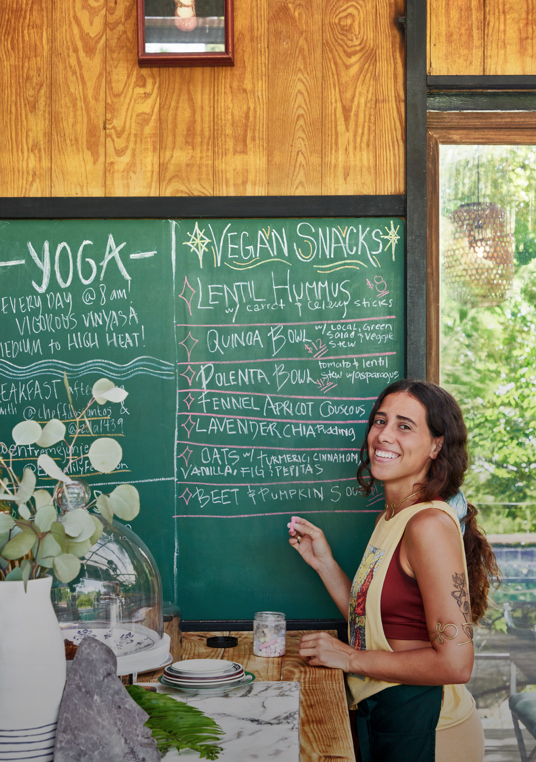 YOGA
EVERY DAY @ 8 am
VIGOROUS VINYASA
MEDIUM to HIGH HEAT!
BREAKFAST after
with @
&
VEGAN SNACKS
LENTIL HUMMUS
w/ carrot & celery sticks
QUINOA BOWL w/ local, green
salad & veggie
stew
POLENTA BOWL tomato & lentil
stew w/ asparagus
FENNEL APRICOT COUSCOUS
LAVENDER CHIA PUDDING
OATS w/ TURMERIC, CINNAMON
VANILLA, FIG & PEPITAS
BEET & PUMPKIN